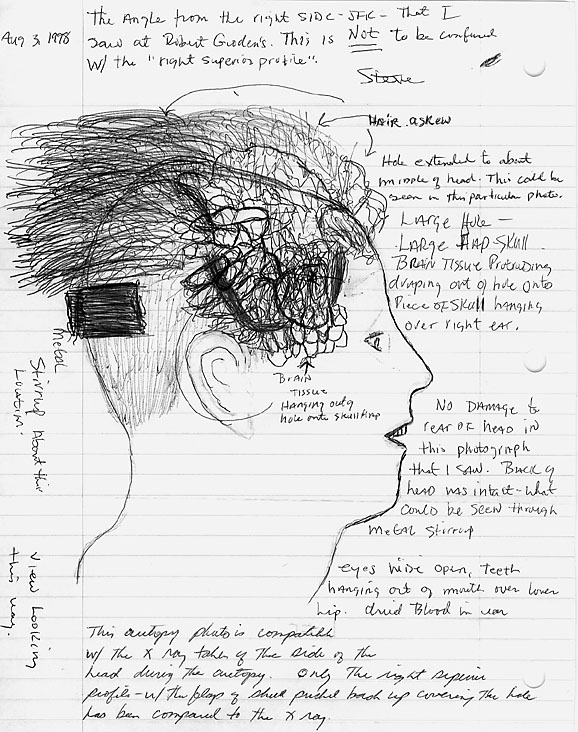 Aug 3, 1998
The Angle from the right side - JFK - that I
saw at Robert Groden's. This is NOT to be confused
w/ the "right superior profile".
Steve
HAIR askew
Hole extended to about
middle of head. This could be
seen in this particular photo.
LARGE Hole —
LARGE Flap-Skull
BRAIN Tissue Protruding
draping out of hole onto
Piece of Skull hanging
over right ear.
Brain
Tissue
Hanging out of
hole onto skull flap
Metal
Stirrup About this
Location.
NO DAMAGE to
rear of head in
this photograph
that I saw. Back of
head was intact - what
could be seen through
Metal Stirrup
eyes wide open, teeth
hanging out of mouth over lower
lip. dried Blood in ear
View Looking
this way.
This autopsy photo is compatible
w/ the X ray taken of the side of the
head during the autopsy. Only the right superior
profile - w/ the flap of skull pushed back up covering the hole
has been compared to the X ray.